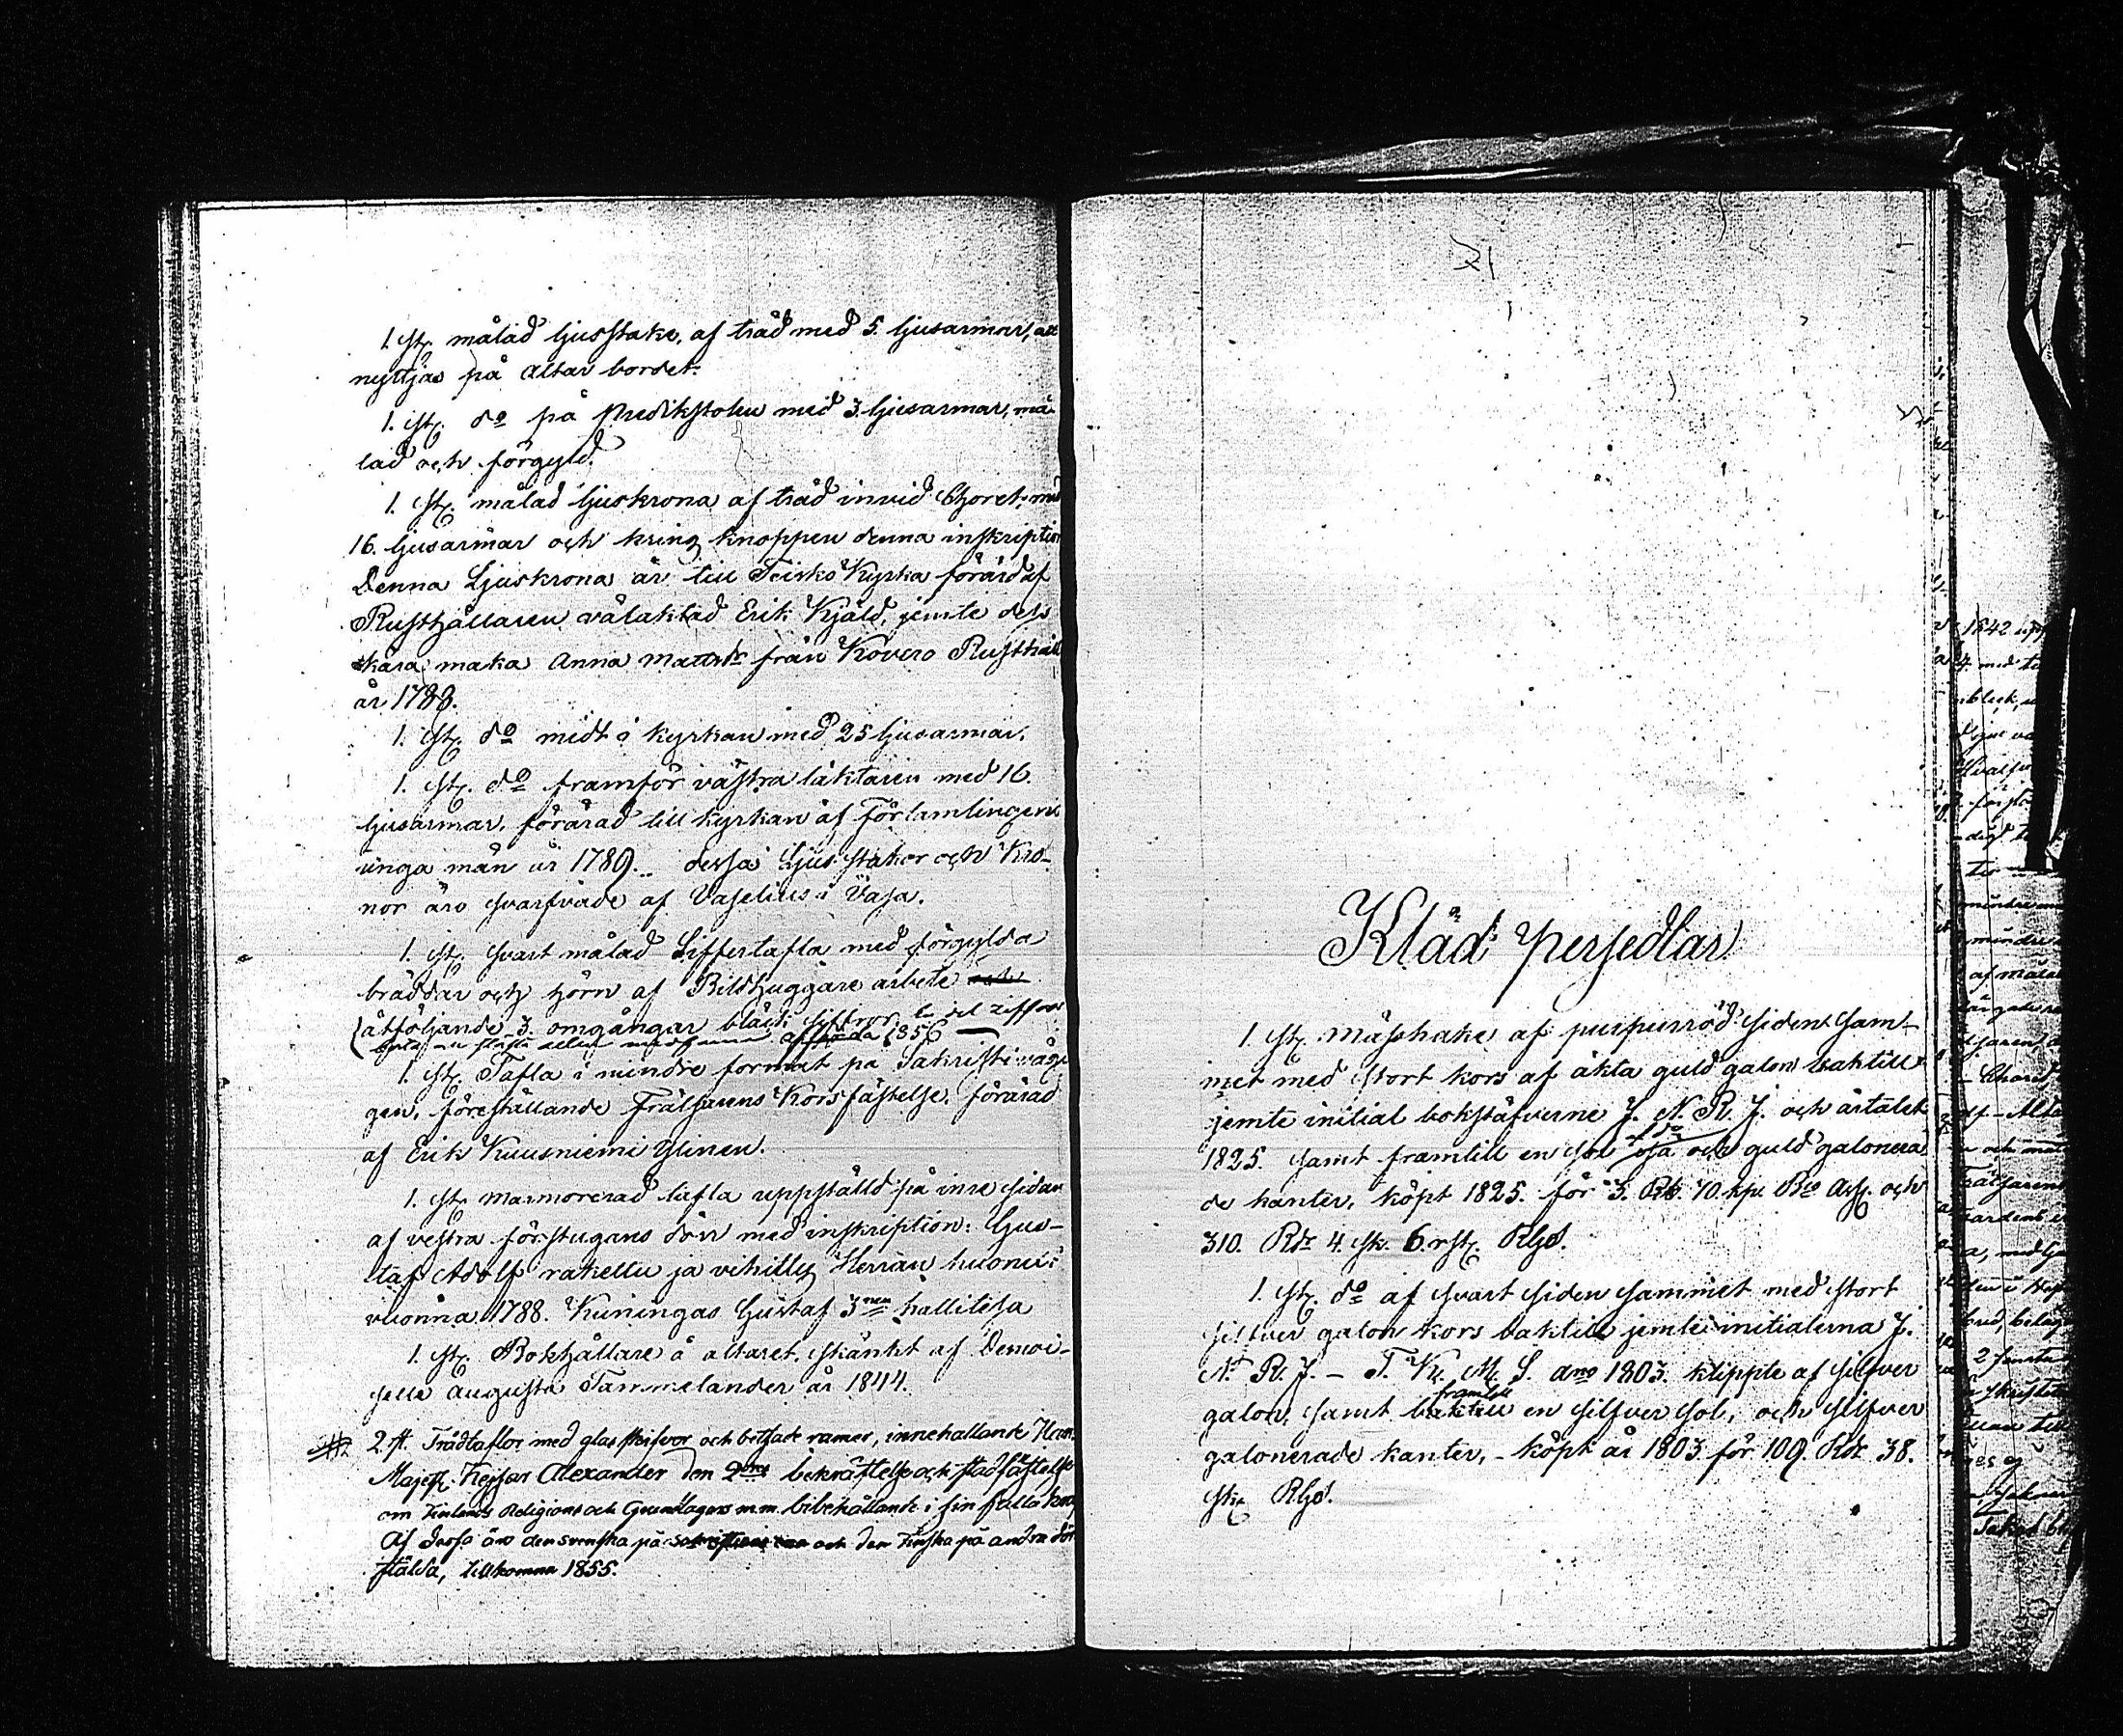 1. St. målad ljusstake, af träd med 5. ljusarmar, att
nyttjas på altar bordet.
1. St. do på Predikstolen med 3. ljusarmar, må-
lad och förgyld.
1. St. målad ljuskrona af träd invid Choret, med
16. ljusarmar och kring knoppen denna inskription
Denna Ljuskrona är till Teisko Kyrka förärd af
Rusthållaren välaktad Erik Kjäld, jemte dess
kära maka Anna Mattsdr från Kovero Rusthåll
år 1788.
1. St. do midt i kyrkan med 25 ljusarmar.
1. St. do framför västra läktaren med 16
ljusarmar, förärad till kyrkan af Församlingens
unga män år 1789. dessa Ljusstakar och Kro-
nor äro svarfvade af Vaselius i Vasa.
1. St. svart målad Siffertafla med förgylda
bräddar och hörn af Bildhuggare arbete och
åtföljande 3. omgångar bläck siffror, en del ziffror
1856
1. St. Tafla i mindre format på Sakristi väg-
gen, föreställande Frälsarens Korsfästelse, förärad
af Erik Kuusniemi Ylinen.
1. St. marmorerad tafla uppställd på inre sidan
af vestra förstugans dörr med inskription: Gus-
taf Adolf rakettu ja vihitty Herran huonet
vuonna 1788. Kuningas Gustaf 3nen hallitesa
1. St. Bokhållare å altaret, skänkt af Demoi-
selle Augusta Tammelander år 1844.
2 st. Trädtaflor med glas skifvor och betsade ramar, innehållande Hans
Majest. Kejsar Alexander den 2dres bekräftelse och stadfästelse
om Finlands Religions och Grundlagars m.m. bibehållande i sin fulla kraft
Af dessa äro den svenska på och den Finska på andra dörr
stälda, tillkomna 1855.
Kläd persedlar
1. St. Mässhake af purpurröd Siden Sam-
met med Stort kors af äkta guld galon baktill
jemte initial bokstäfverne J. N. R. J. och årtalet
1825. samt framtill en Sol och guld galonera-
de kanter, köpt 1825. för 3. Rb. 70. kp. Bco Ass. och
310. Rdr 4. sk. 6. rst. Rgs.
1. St. do af svart siden sammet med stort
silfver galon kors baktill jemte initialerna J.
N. R. J. - T. K. M. S. ano 1803. klippte af silfver
framtill
galon, samt baktill en silfver sol, och silfver
galonerade kanter, - köpt år 1803 för 109. Rdr 38.
sk. Rgs.